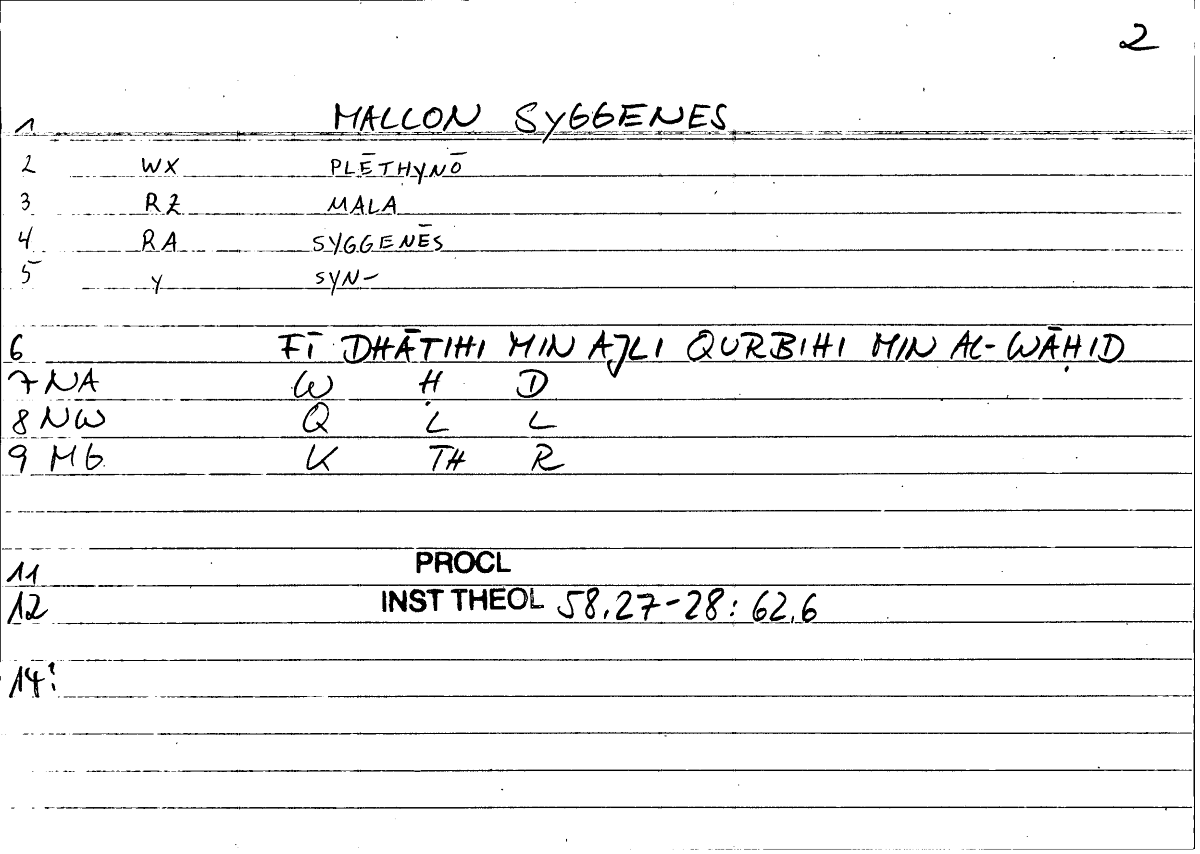 2
1 MALLON SYGGENES
2 WX PLĒTHYNŌ
3 RZ MALA
4 RA SYGGENĒS
5 Y SYN-
6 FĪ DHĀTIHI MIN AJLI QURBIHI MIN AL-WĀḤID
7 NA W Ḥ D
8 NW Q L L
9 M6 K TH R
11 PROCL
12 INST THEOL 58.27-28: 62.6
14: